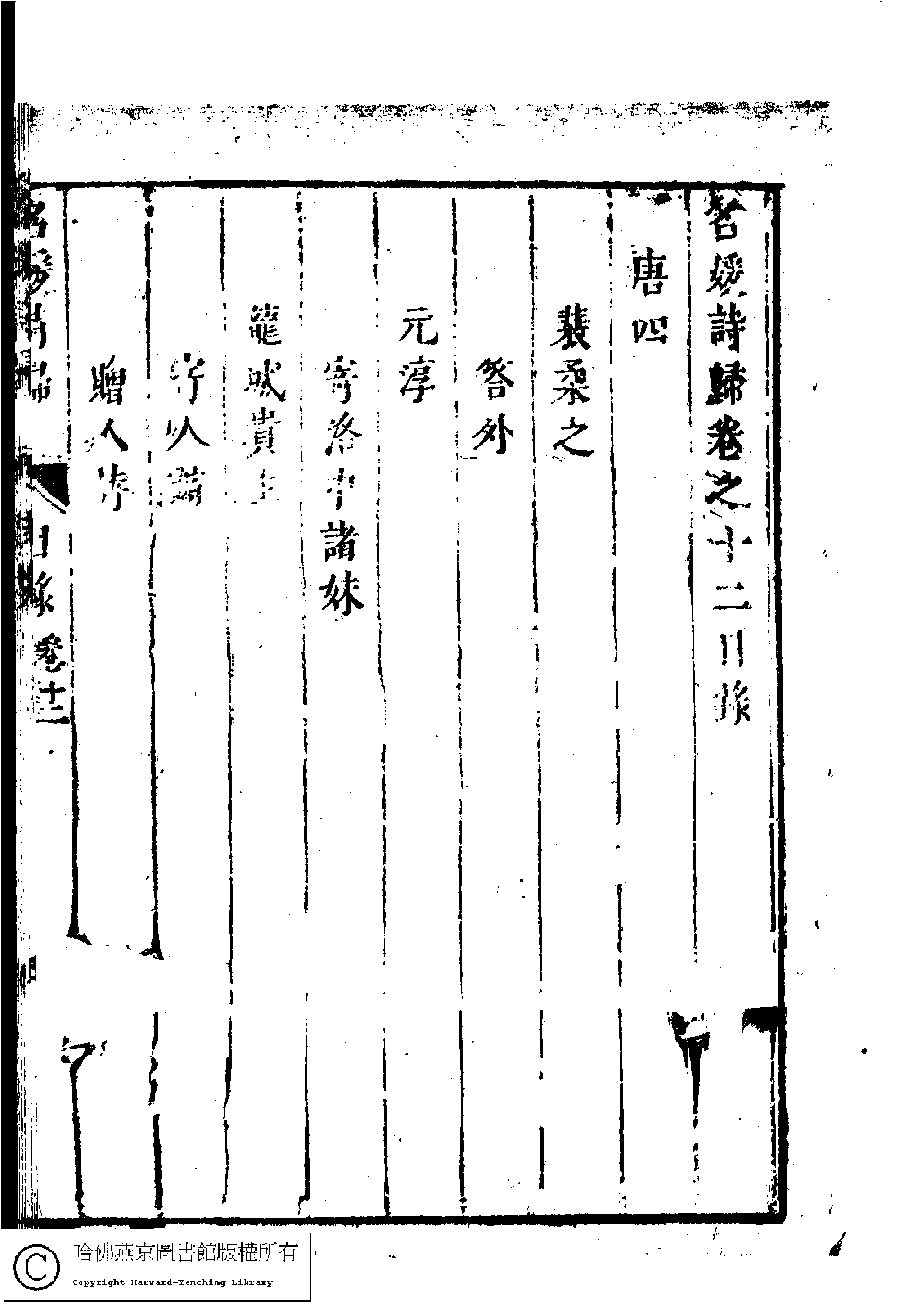 名媛詩歸卷之十二目錄
唐四
裴柔之
答外
元淳
寄洛中諸妹
龍城貴主
寄人
贈人
名媛詩歸
目錄 卷十二
哈佛燕京圖書館版權所有
Copyright Harvard-Yenching Library